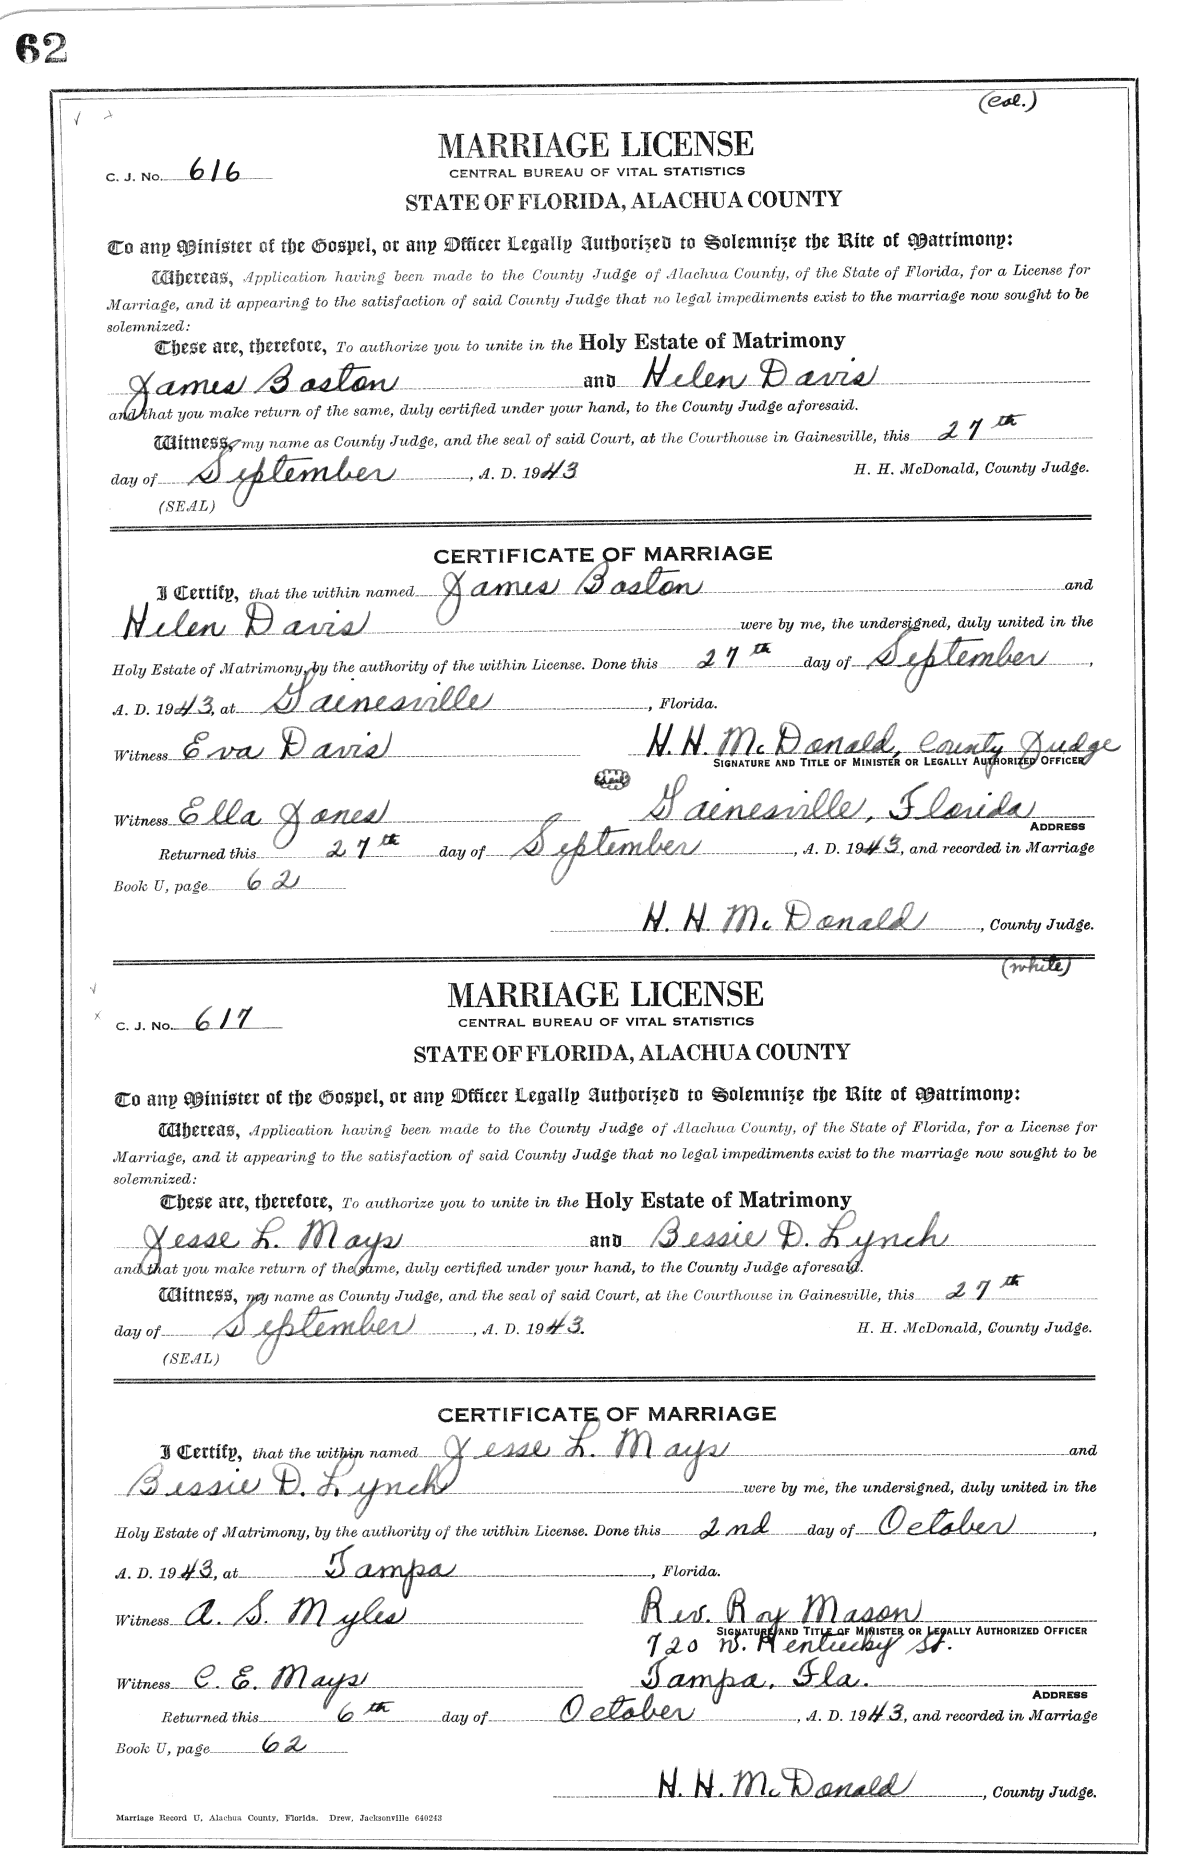 62
(Col.)
MARRIAGE LICENSE
C. J. No. 616
CENTRAL BUREAU OF VITAL STATISTICS
STATE OF FLORIDA, ALACHUA COUNTY
To any Minister of the Gospel, or any Officer Legally Authorized to Solemnize the Rite of Matrimony:
Whereas, Application having been made to the County Judge of Alachua County, of the State of Florida, for a License for
Marriage, and it appearing to the satisfaction of said County Judge that no legal impediments exist to the marriage now sought to be
solemnized:
These are, therefore, To authorize you to unite in the Holy Estate of Matrimony
James Boston and Helen Davis
and that you make return of the same, duly certified under your hand, to the County Judge aforesaid.
Witness, my name as County Judge, and the seal of said Court, at the Courthouse in Gainesville, this 27th
day of September, A. D. 1943 H. H. McDonald, County Judge.
(SEAL)
CERTIFICATE OF MARRIAGE
I Certify, that the within named James Boston and
Helen Davis were by me, the undersigned, duly united in the
Holy Estate of Matrimony, by the authority of the within License. Done this 27th day of September,
A. D. 1943, at Gainesville, Florida.
Witness Eva Davis H. H. McDonald, County Judge
SIGNATURE AND TITLE OF MINISTER OR LEGALLY AUTHORIZED OFFICER
Witness Ella Jones Gainesville, Florida
ADDRESS
Returned this 27th day of September, A. D. 1943, and recorded in Marriage
Book U, page 62
H. H. McDonald, County Judge.
(white)
MARRIAGE LICENSE
C. J. No. 617
CENTRAL BUREAU OF VITAL STATISTICS
STATE OF FLORIDA, ALACHUA COUNTY
To any Minister of the Gospel, or any Officer Legally Authorized to Solemnize the Rite of Matrimony:
Whereas, Application having been made to the County Judge of Alachua County, of the State of Florida, for a License for
Marriage, and it appearing to the satisfaction of said County Judge that no legal impediments exist to the marriage now sought to be
solemnized:
These are, therefore, To authorize you to unite in the Holy Estate of Matrimony
Jesse L. Mays and Bessie D. Lynch
and that you make return of the same, duly certified under your hand, to the County Judge aforesaid.
Witness, my name as County Judge, and the seal of said Court, at the Courthouse in Gainesville, this 27th
day of September, A. D. 1943. H. H. McDonald, County Judge.
(SEAL)
CERTIFICATE OF MARRIAGE
I Certify, that the within named Jesse L. Mays and
Bessie D. Lynch were by me, the undersigned, duly united in the
Holy Estate of Matrimony, by the authority of the within License. Done this 2nd day of October,
A. D. 1943, at Tampa, Florida.
Witness A. S. Myles Rev. Roy Mason
SIGNATURE AND TITLE OF MINISTER OR LEGALLY AUTHORIZED OFFICER
720 W. Kentucky St.
Witness C. E. Mays Tampa, Fla.
ADDRESS
Returned this 6th day of October, A. D. 1943, and recorded in Marriage
Book U, page 62
H. H. McDonald, County Judge.
Marriage Record U, Alachua County, Florida. Drew, Jacksonville 640243